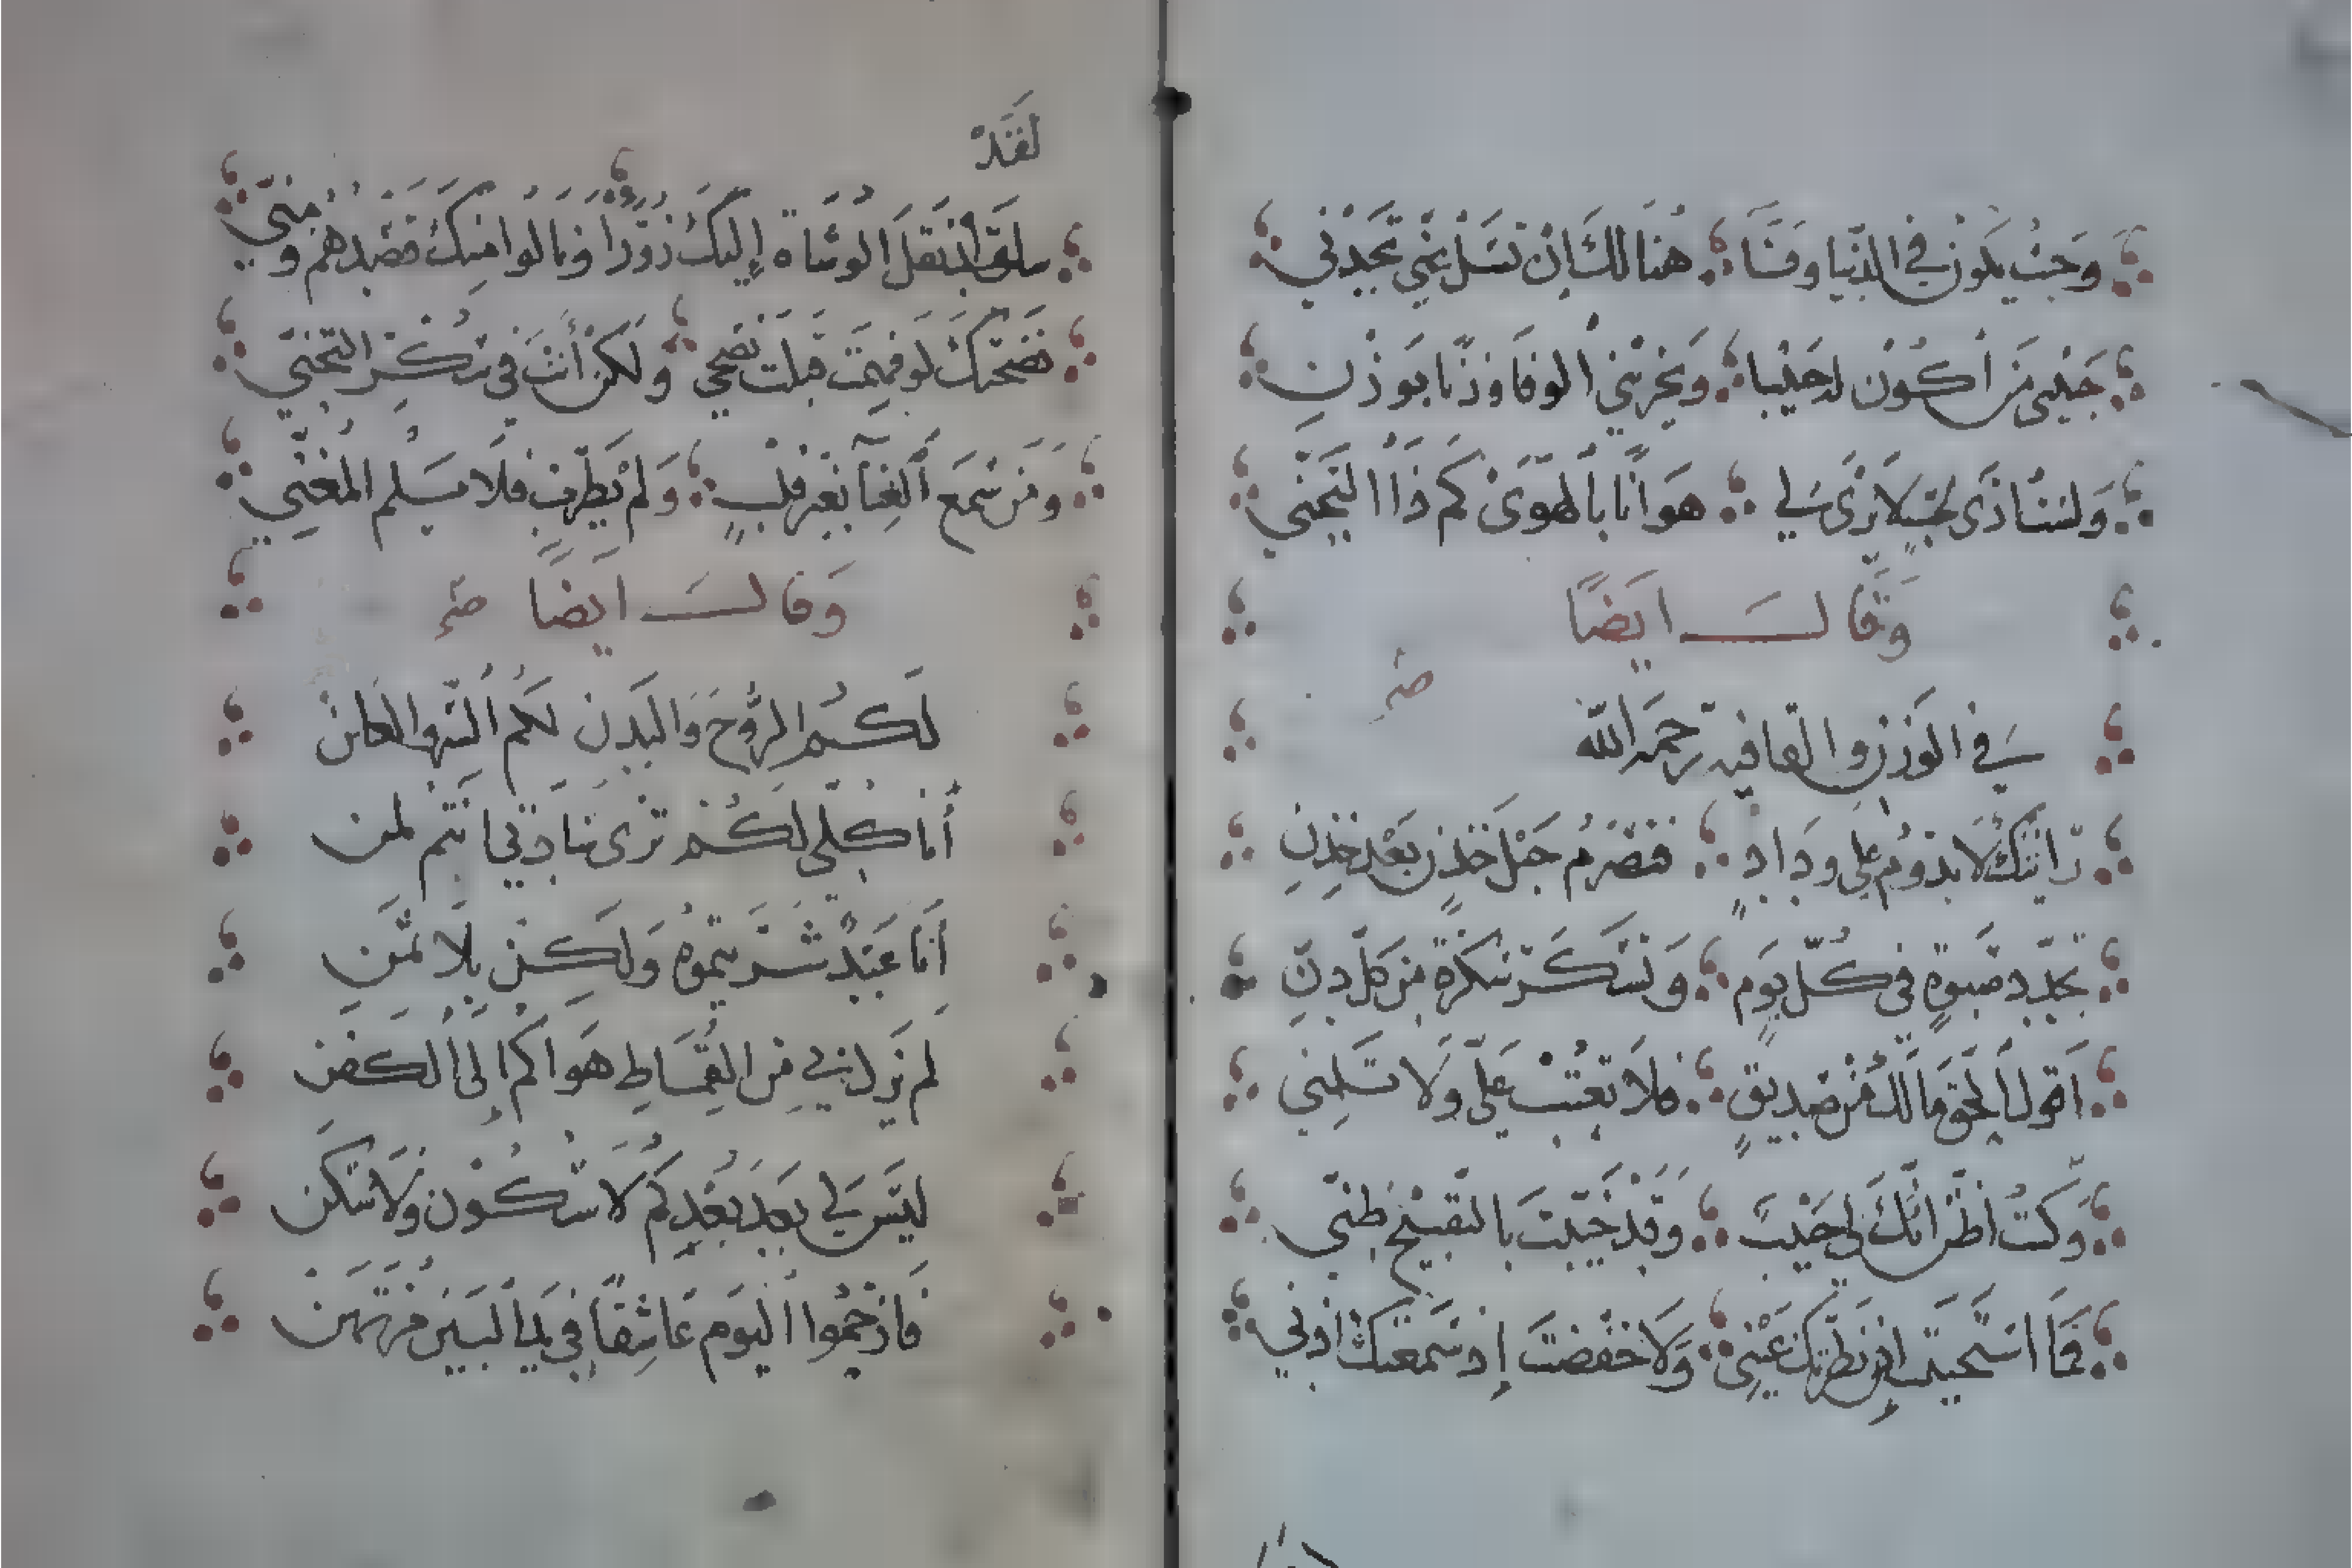 وَحَيْثُ يَكُونُ فِي الدُّنْيَا وَفَاءٌ هُنَالِكَ إِنْ تَسَلْ عَنِّي تَجِدْنِي
حَبِيبِي مَنْ أَكُونُ لَهُ حَبِيبًا وَيَجْزِينِي الْوَفَا وَزْنًا بِوَزْنِ
وَلَسْتُ أَرَى لِمَنْ لَا يَرَى لِي هَوَانًا بِالْهَوَى كَمْ ذَا التَّجَنِّي
وَقَالَ أَيْضًا
فِي الْوَزْنِ وَالْقَافِيَةِ رَحِمَهُ اللَّهُ
رَأَيْتُكَ لَا تَدُومُ عَلَى وِدَادٍ فَتَصْرِمُ حَبْلَ خِدْنٍ بَعْدَ خِدْنِ
تُجَدِّدُ صَبْوَةً فِي كُلِّ يَوْمٍ وَتَسْكَرُ سَكْرَةً مِنْ كُلِّ دَنِّ
أَقُولُ الْحَقَّ مَا لَكَ مِنْ صَدِيقٍ فَلَا تَعْتِبْ عَلَيَّ وَلَا تَلُمْنِي
وَكُنْتُ أَظُنُّ أَنَّكَ لِي حَبِيبٌ وَقَدْ خَيَّبْتَ بِالتَّقْبِيحِ ظَنِّي
فَمَا اسْتَحْيَتْ إِذْ نَظَرَتْكَ عَيْنِي وَلَا خَفَضَتْ إِذْ سَمِعَتْكَ أُذْنِي
لَقَدْ
نَقَلَ الْوُشَاةُ إِلَيْكَ زُورًا وَنَالُوا مِنْكَ قَصْدَهُمُ وَمِنِّي
نَصَحْتُكَ لَوْ فَهِمْتَ قَبِلْتَ نُصْحِي وَلَكِنْ أَنْتَ فِي سُكْرِ التَّجَنِّي
وَمَنْ سَمِعَ الْغِنَاءَ بِغَيْرِ قَلْبٍ وَلَمْ يَطْرَبْ فَلَا يَلُمِ الْمُغَنِّي
وَقَالَ أَيْضًا
لَكُمُ الرُّوحُ وَالْبَدَنْ لَكُمُ السِّرُّ وَالْعَلَنْ
أَنَا كُلِّي لَكُمْ تَرَى سَادَتِي أَنْتُمُ لِمَنْ
أَنَا عَبْدٌ شَرَيْتُمُوهُ وَلَكِنْ بِلَا ثَمَنْ
لَمْ يَزَلْ بِي مِنَ الْقِمَاطِ هَوَاكُمْ إِلَى الْكَفَنْ
لَيْسَ لِي بَعْدَ بُعْدِكُمْ لَا سُكُونٌ وَلَا سَكَنْ
فَارْحَمُوا الْيَوْمَ عَاشِقًا فِي يَدِ الْبَيْنِ مُرْتَهَنْ